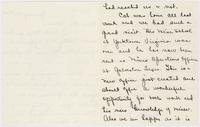 had reached us or not.
Cal was home all last
week and we had such a
good visit. The Mine School
at Yorktown Virginia was
over and he has now been
sent as Mine Officer
at Galveston Texas. This is a
new office just created and
should offer a wonderful
opportunity for work with
his new knowledge of mines.
Also we are happy as it is